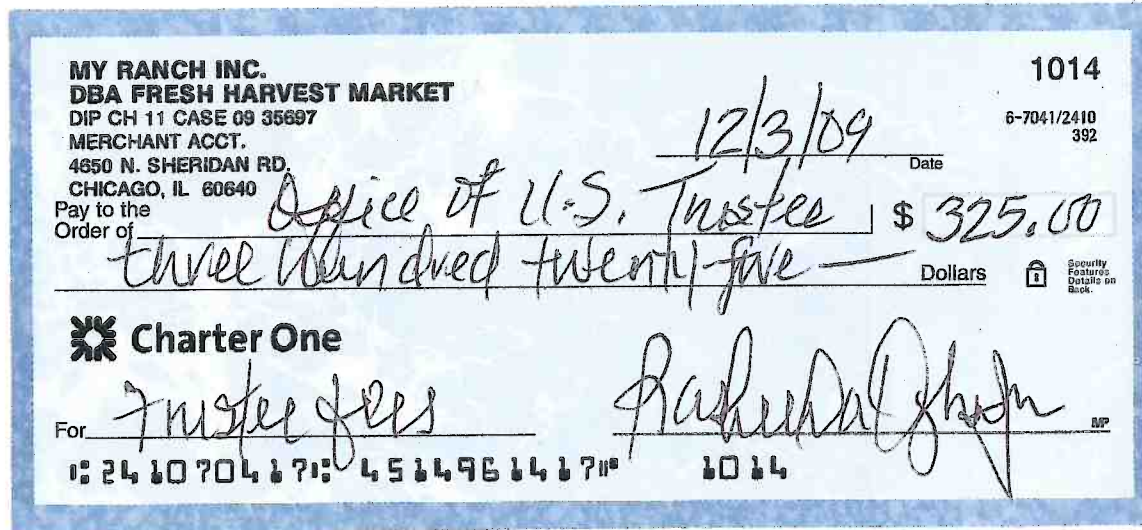 MY RANCH INC.
DBA FRESH HARVEST MARKET
DIP CH 11 CASE 09 35697
MERCHANT ACCT.
4650 N. SHERIDAN RD.
CHICAGO, IL 60640
1014
6-7041/2410
392
12/3/09
Date
Pay to the
Order of Office of U.S. Trustee $ 325.00
three hundred twenty five — Dollars
Security
Features
Details on
Back.
Charter One
For Trustee fees
MP
⑆241070417⑆ 4514961417⑈ 1014